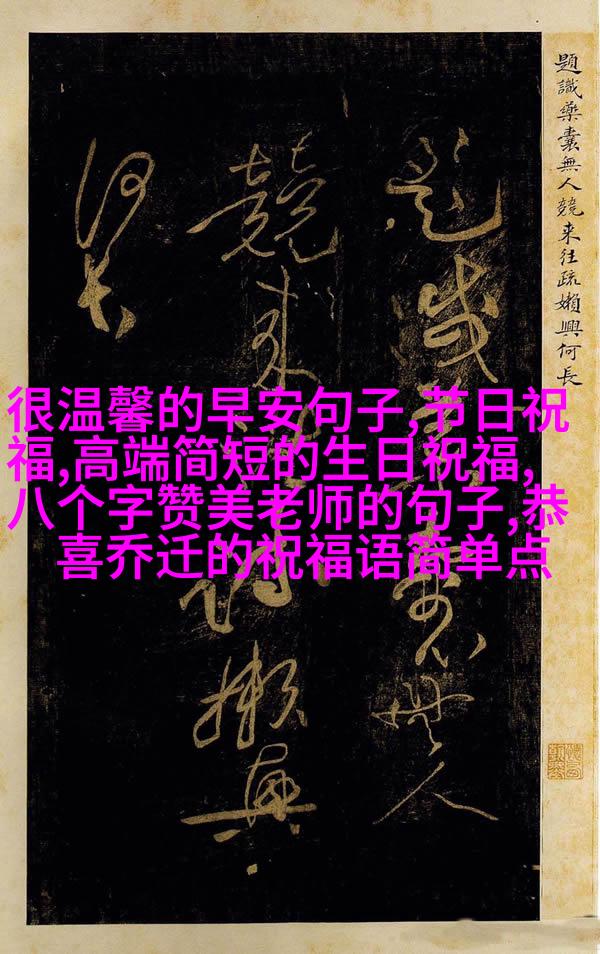 題識藥囊無人競来往疏嬾興何長
無人
競来往疏嬾興
何長
很温馨的早安句子,节日祝
福,高端简短的生日祝福,
八个字赞美老师的句子,恭
喜乔迁的祝福语简单点